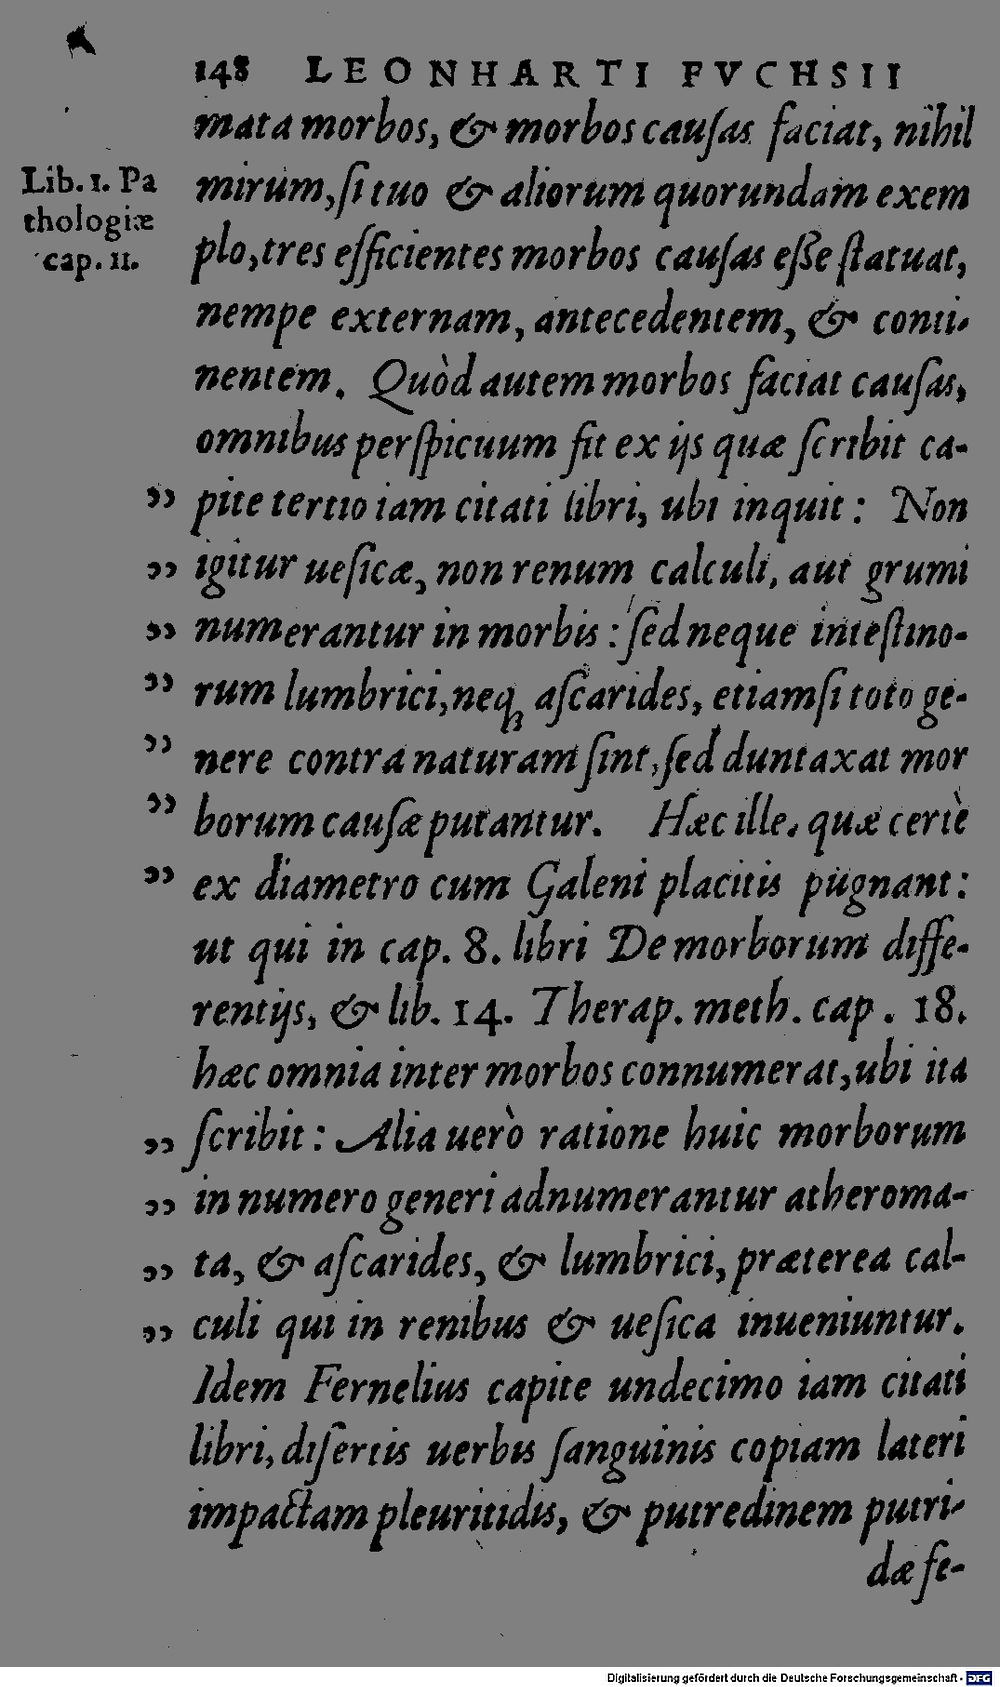 148 LEONHARTI FVCHSII
mata morbos, & morbos cauſas faciat, nihil
Lib. 1. Pa
thologiæ
cap. 11.
mirum, ſi tuo & aliorum quorundam exem
plo, tres efficientes morbos cauſas eſſe ſtatuat,
nempe externam, antecedentem, & conti-
nentem. Quòd autem morbos faciat cauſas,
omnibus perſpicuum fit ex ijs quæ ſcribit ca-
„ pite tertio iam citati libri, ubi inquit: Non
„ igitur ueſicæ, non renum calculi, aut grumi
„ numerantur in morbis: ſed neque inteſtino-
„ rum lumbrici, neqꝫ aſcarides, etiamſi toto ge-
„ nere contra naturam ſint, ſed duntaxat mor
„ borum cauſæ putantur. Hæc ille. quæ certè
„ ex diametro cum Galeni placitis pugnant:
ut qui in cap. 8. libri De morborum diffe-
rentijs, & lib. 14. Therap. meth. cap. 18.
hæc omnia inter morbos connumerat, ubi ita
„ ſcribit: Alia uerò ratione huic morborum
„ in numero generi adnumerantur atheroma-
„ ta, & aſcarides, & lumbrici, præterea cal-
„ culi qui in renibus & ueſica inueniuntur.
Idem Fernelius capite undecimo iam citati
libri, diſertis uerbis ſanguinis copiam lateri
impactam pleuritidis, & putredinem putri-
dæ fe-
Digitalisierung gefördert durch die Deutsche Forschungsgemeinschaft - DFG